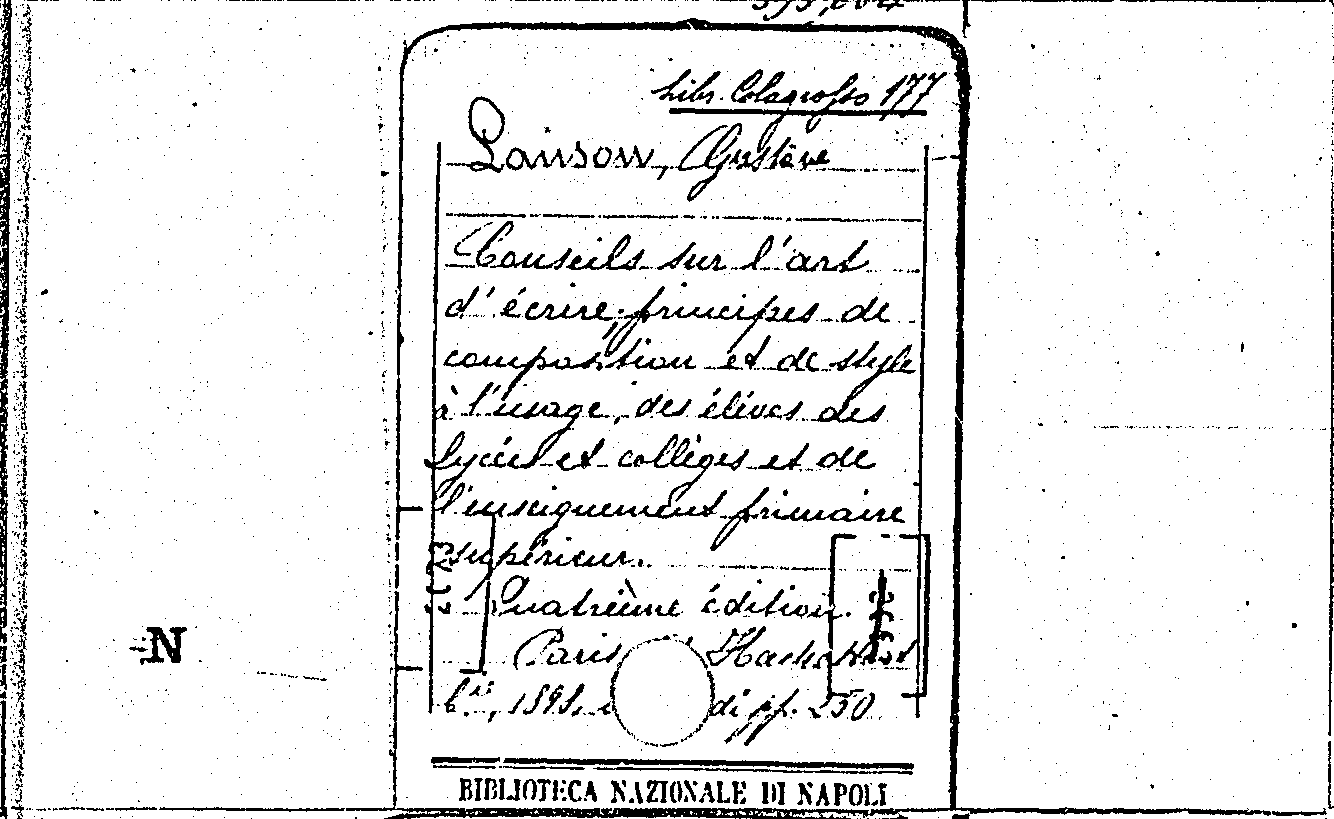 Libr. Colagrosso 177
Lanson, Gustave
Conseils sur l'art
d'écrire, principes de
composition et de style
à l'usage, des élèves des
lycées et collèges et de
l'enseignement primaire
supérieur.
Quatrième édition.
Paris Hachette et
C.ie, 1898, di pp. 250
N
BIBLIOTECA NAZIONALE DI NAPOLI